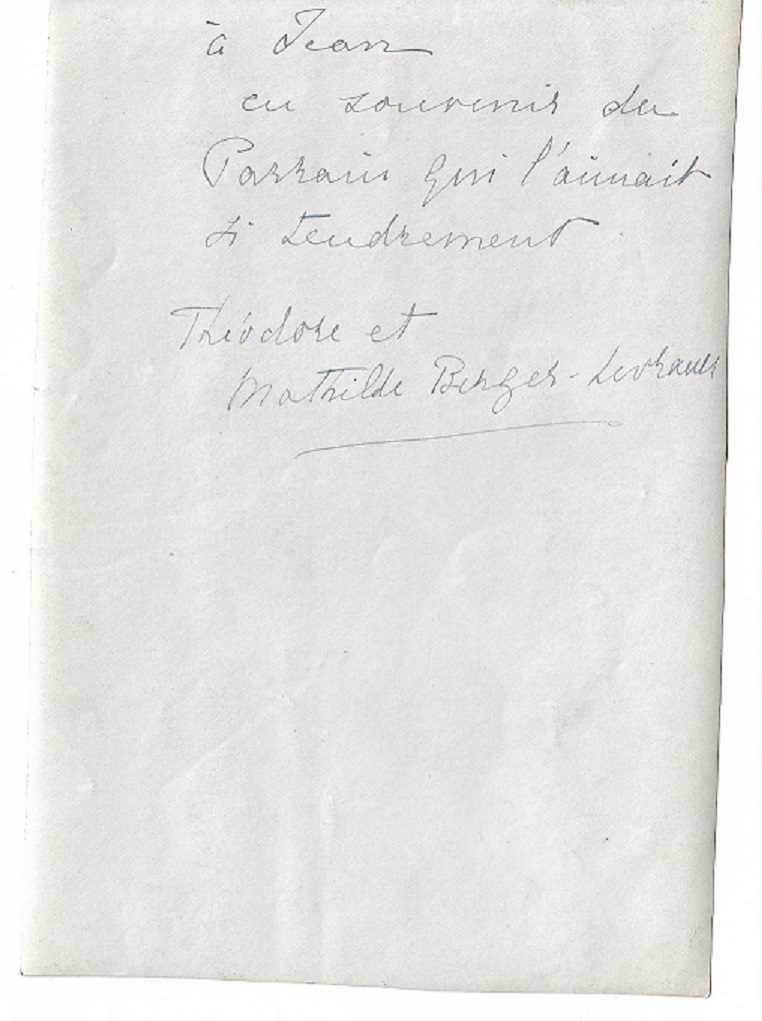 à Jean
en souvenir du
Parrain qui l'aimait
si tendrement
Théodore et
Mathilde Berger-Levrault